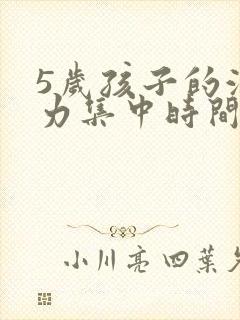 5歲孩子的
力集中時間
小川亮 四葉